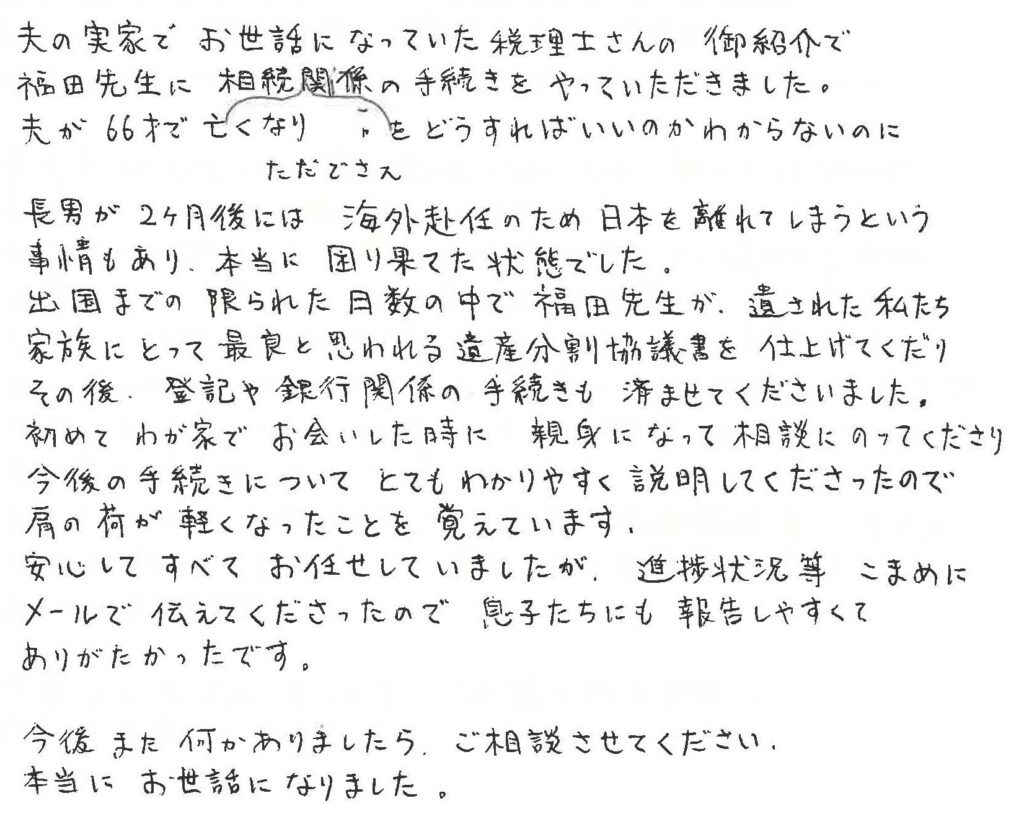 夫の実家で お世話になっていた税理士さんの 御紹介で
福田先生に 相続関係の手続きを やっていただきました。
夫が 66才で亡くなり 何をどうすればいいのかわからないのに
ただでさえ
長男が 2ヶ月後には 海外赴任のため日本を離れてしまうという
事情もあり、本当に 困り果てた状態でした。
出国までの 限られた日数の中で 福田先生が、遺された私たち
家族にとって最良と思われる遺産分割協議書を 仕上げてくだり
その後、登記や銀行関係の手続きも 済ませてくださいました。
初めて わが家で お会いした時に 親身になって相談にのってくださり
今後の手続きについて とてもわかりやすく説明してくださったので
肩の荷が 軽くなったことを 覚えています。
安心して すべて お任せしていましたが、進捗状況等 こまめに
メールで 伝えてくださったので 息子たちにも 報告しやすくて
ありがたかったです。
今後 また 何かありましたら、ご相談させてください。
本当に お世話になりました。